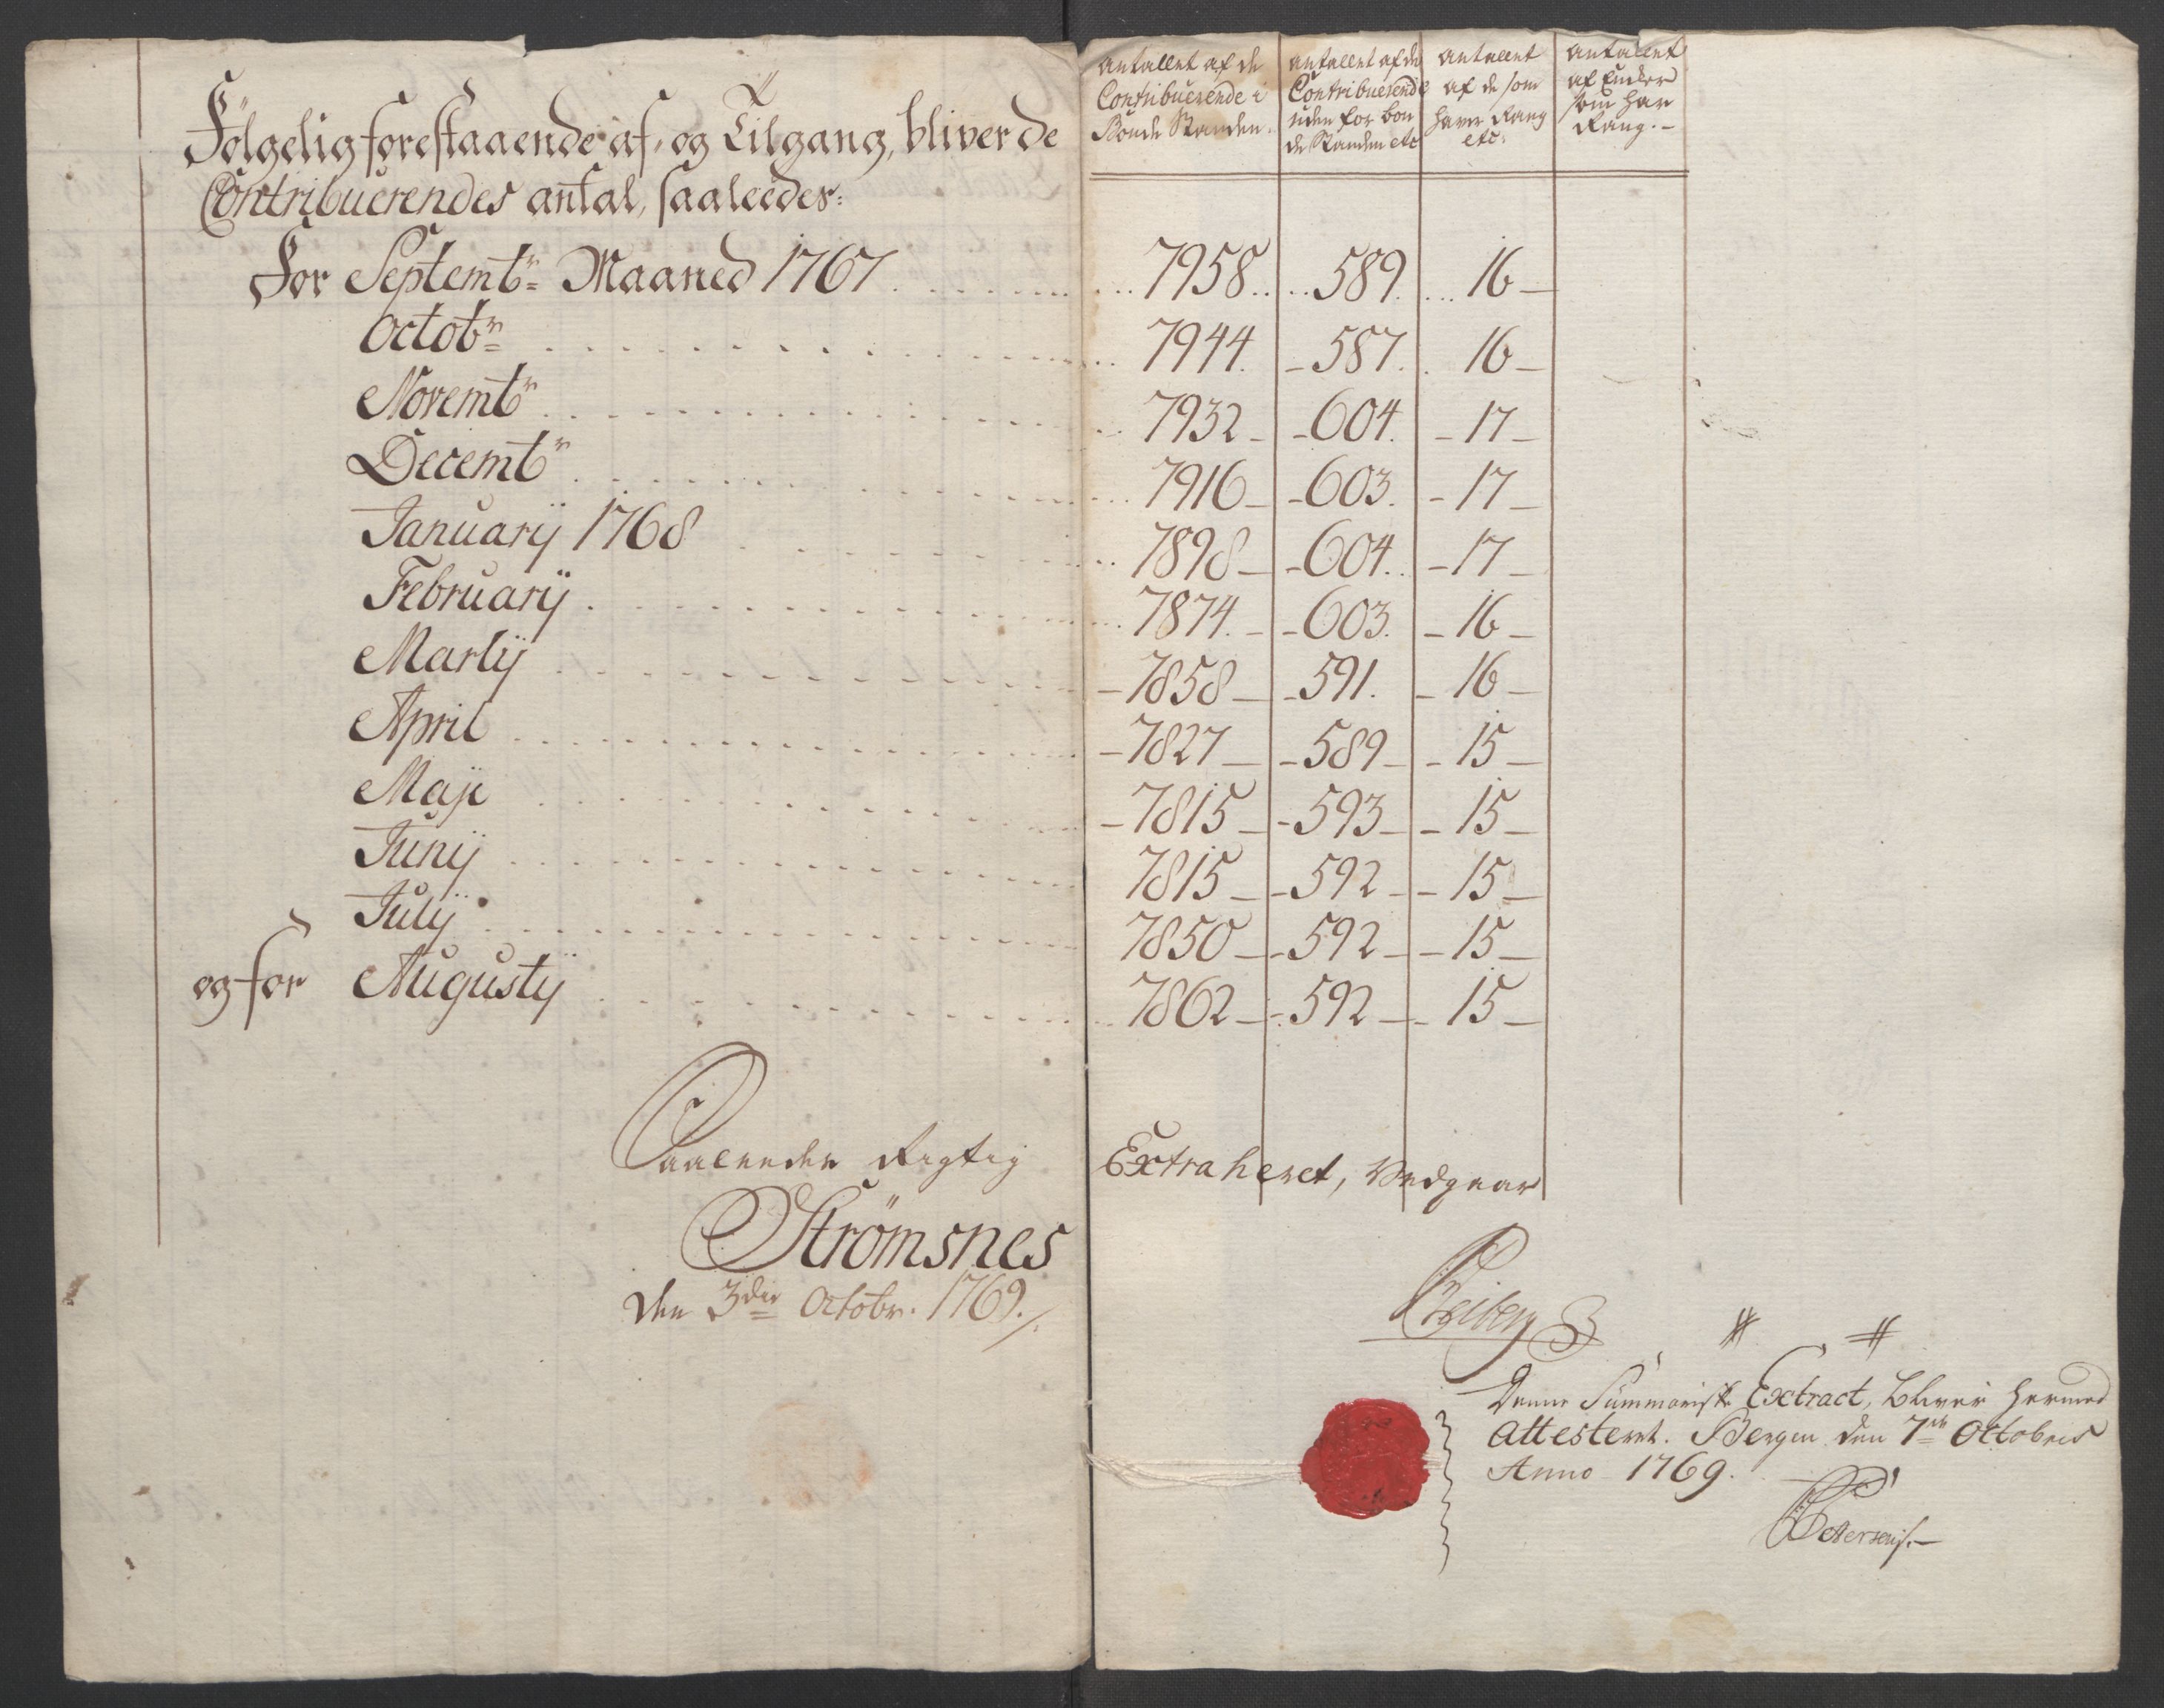 Følgelig forestaaende af- og Tilgang, bliver de
Contribuerendes antal, saaleedes:
antallet af de Contribuerende i Bonde Standen.
antallet af de Contribuerende uden for bonde Standen etc
antallet af de som haver Rang etc:
antallet af Encker som har Rang.-
For Septembr= Maaned 1767 . . . 7958. . . 589. . . 16 —
Octobr= . . . 7944. – 587. . 16 –
Novembr . . . 7932 – – 604. – 17 –
Decembr . . . 7916 – – 603. – 17 –
Januarij 1768 . . . 7898 – – 604. . – 17 –
Februarij . . . 7874. – – 603. – 16 –
Martij . . . – 7858 – – 591. – 16 –
April . . . – 7827 – – 589 – – 15 –
Maji . . . – 7815 – – 593 – – 15 –
Junij . . . 7815 – – 592 – – 15 –
Julij . . . 7850 – – 592 – – 15 –
og for Augustij . . . 7862 – – 592 – – 15 –
Saaleedes Rigtig Extraheret, Vedgaar
Strømsnes
den 3die Octobr. 1769./.
Denne Summariske Extract, bliver hermed
Attesteret. Bergen den 7de Octobris
Anno 1769.